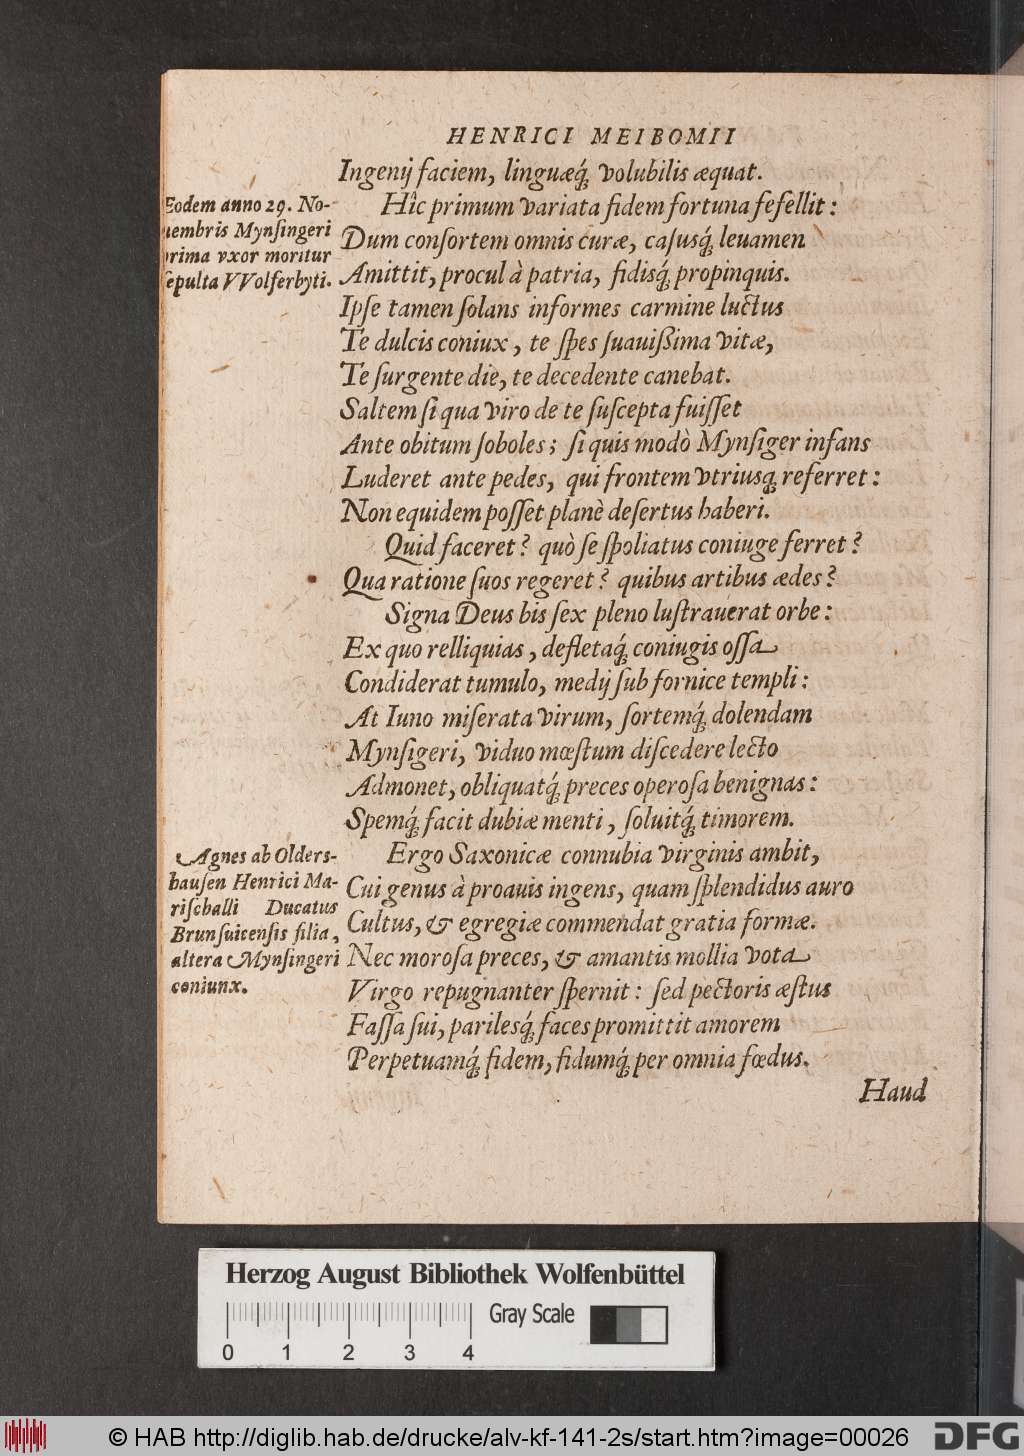 HENRICI MEIBOMII
Ingenij faciem, linguæq́; volubilis æquat.
Eodem anno 29. No-
uembris Mynſingeri
prima vxor moritur
ſepulta VVolferbyti.
Hîc primum variata fidem fortuna fefellit:
Dum conſortem omnis curæ, caſusq́; leuamen
Amittit, procul à patria, fidisq́; propinquis.
Ipſe tamen ſolans informes carmine luctus
Te dulcis coniux, te ſpes ſuauißima vitæ,
Te ſurgente die, te decedente canebat.
Saltem ſi qua viro de te ſuſcepta fuiſſet
Ante obitum ſoboles; ſi quis modò Mynſiger infans
Luderet ante pedes, qui frontem vtriusq́; referret:
Non equidem poſſet planè deſertus haberi.
Quid faceret? quò ſe ſpoliatus coniuge ferret?
Qua ratione ſuos regeret? quibus artibus ædes?
Signa Deus bis ſex pleno luſtrauerat orbe:
Ex quo relliquias, defletaq́; coniugis oſſa
Condiderat tumulo, medij ſub fornice templi:
At Iuno miſerata virum, ſortemq́; dolendam
Mynſigeri, viduo mœſtum diſcedere lecto
Admonet, obliquatq́; preces operoſa benignas:
Spemq́; facit dubiæ menti, ſoluitq́; timorem.
Agnes ab Olders-
hauſen Henrici Ma-
riſchalli Ducatus
Brunſuicenſis filia,
altera Mynſingeri
coniunx.
Ergo Saxonicæ connubia virginis ambit,
Cui genus à proauis ingens, quam ſplendidus auro
Cultus, & egregiæ commendat gratia formæ.
Nec moroſa preces, & amantis mollia vota
Virgo repugnanter ſpernit: ſed pectoris æſtus
Faſſa ſui, parilesq́; faces promittit amorem
Perpetuamq́; fidem, fidumq́; per omnia fœdus.
Haud
Herzog August Bibliothek Wolfenbüttel
Gray Scale
0 1 2 3 4
© HAB http://diglib.hab.de/drucke/alv-kf-141-2s/start.htm?image=00026
DFG